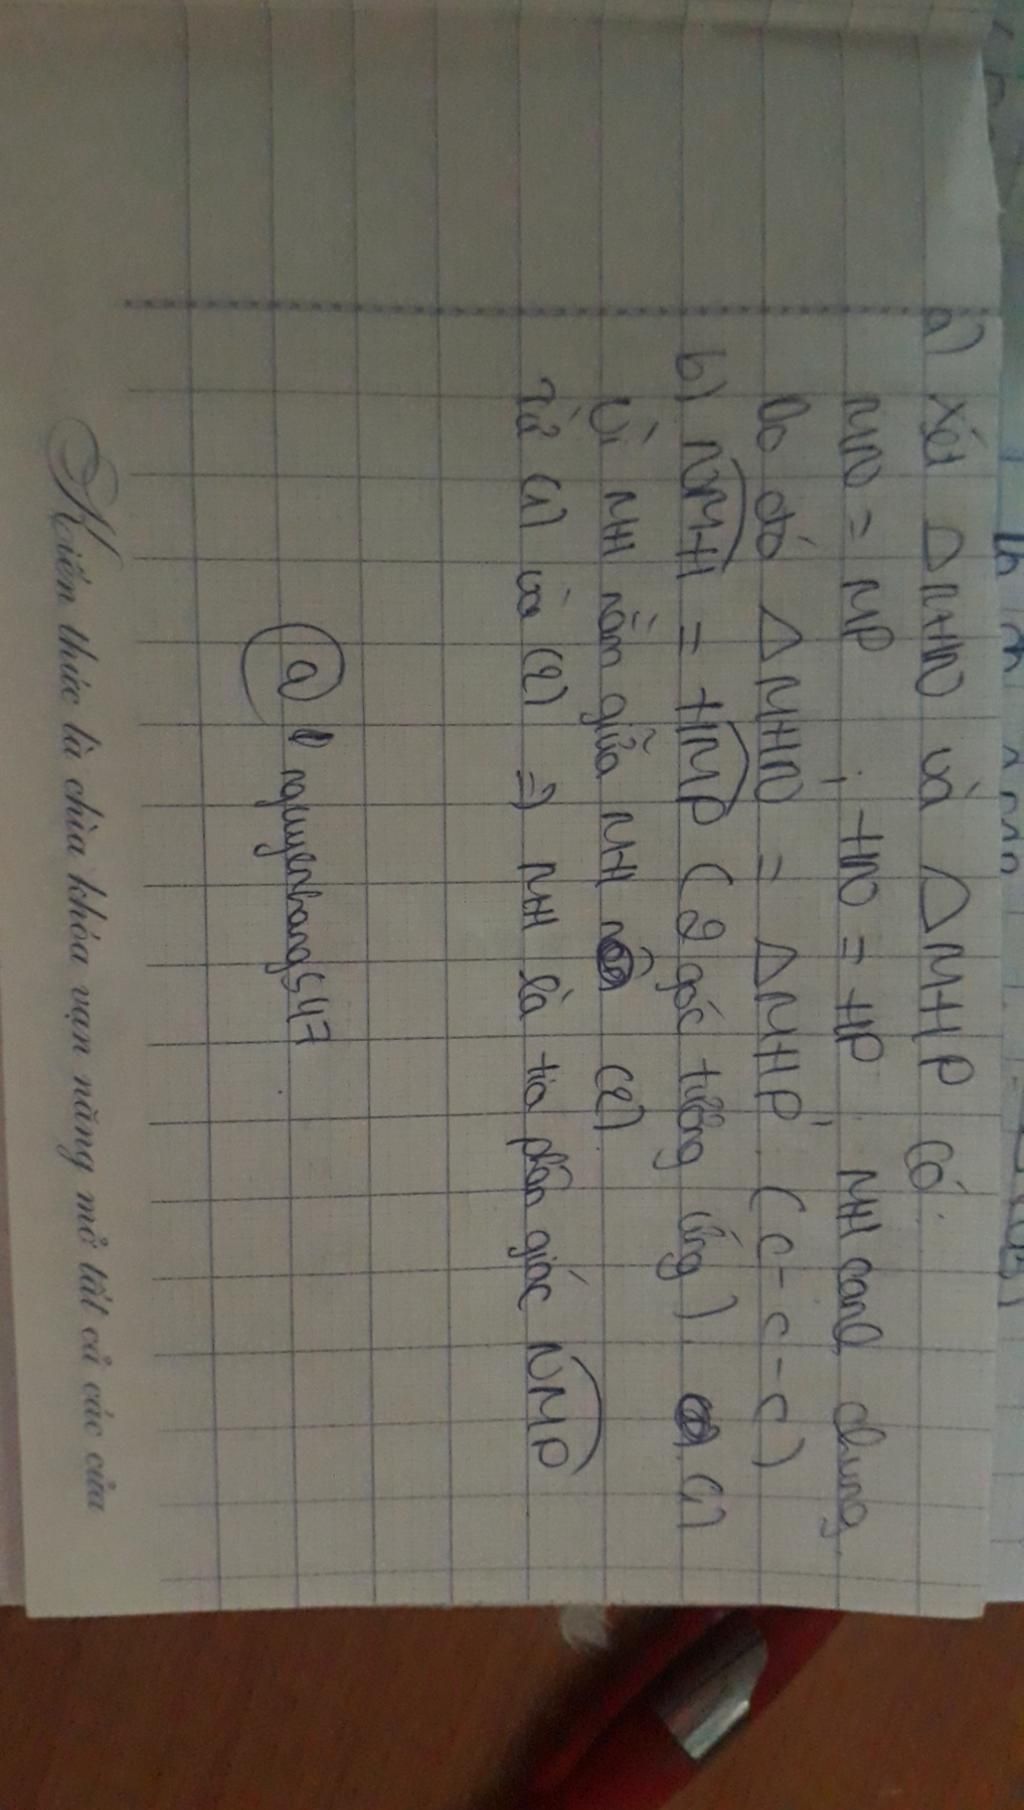 a) Xét △MHN và △MHP có:
MN = MP, HN = HP. MH cạnh chung.
Do đó △MHN = △MHP (c-c-c)
b) NMH = HMP (2 góc tương ứng). (1)
Vì MH nằm giữa MH (2)
Từ (1) và (2) => MH là tia phân giác NMP
@ nguyenbang547
Kiến thức là chìa khóa vạn năng mở tất cả các cửa